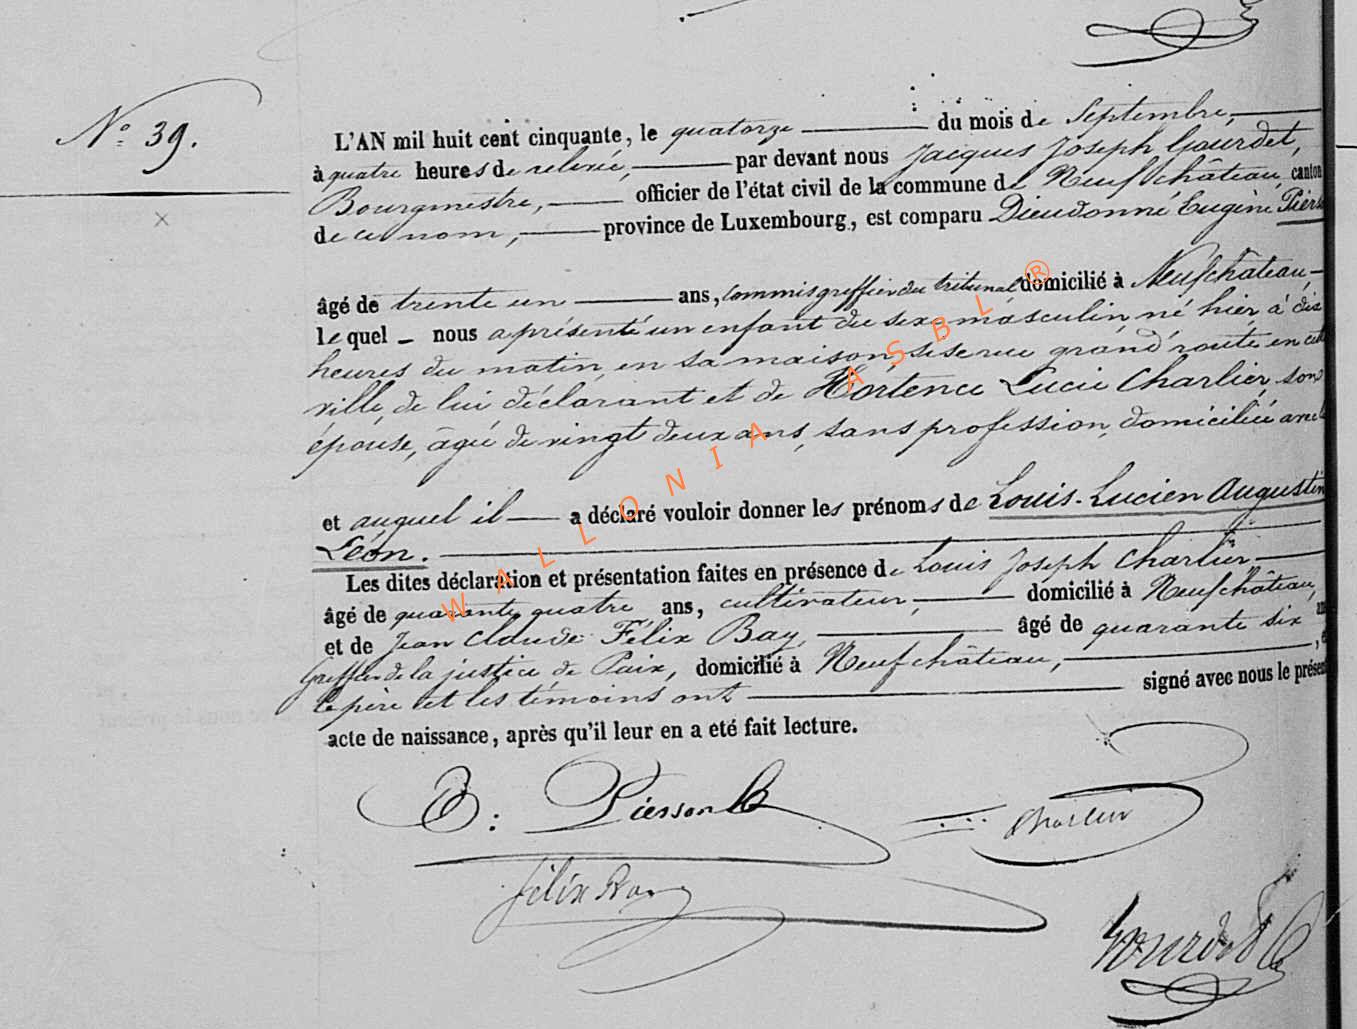 N° 39.
L'AN mil huit cent cinquante, le quatorze du mois de Septembre,
à quatre heures de relevée, par devant nous Jacques Joseph Gourdet,
Bourgmestre, officier de l'état civil de la commune de Neufchâteau, canton
de ce nom, province de Luxembourg, est comparu Dieudonné Eugène Pierson
âgé de trente un ans, commis greffier du tribunal domicilié à Neufchâteau,
lequel nous a présenté un enfant du sexe masculin né hier, à dix
heures du matin, en sa maison, sise rue grand'route en cette
ville, de lui déclarant et de Hortence Lucie Charlier, son
épouse, âgée de vingt deux ans, sans profession, domiciliée avec lui
et auquel il a déclaré vouloir donner les prénoms de Louis-Lucien Augustin
Léon.
Les dites déclaration et présentation faites en présence de Louis Joseph Charlier
âgé de quarante quatre ans, cultivateur, domicilié à Neufchâteau,
et de Jean Claude Félix Bay, âgé de quarante six ans
Greffier de la justice de Paix, domicilié à Neufchâteau,
le père et les témoins ont signé avec nous le présent
acte de naissance, après qu'il leur en a eté fait lecture.
D: Pierson
Charlier
Félix Bay
Gourdet
WALLONIA ASBL ®